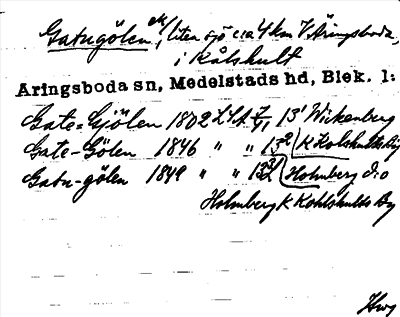 Gatugölen ek, liten sjö c:a 4 km V Åringsboda,
i Kålshult
Aringsboda sn, Medelstads hd, Blek. l:
Gate=Gjölen 1802 LSA 13¹ Wickenberg
Gate-Gölen 1846 " " 13² K Kolshults By
Gatu-gölen 1849 " " Holmberg d:o
Holmberg K Kohlshults By
Hwg